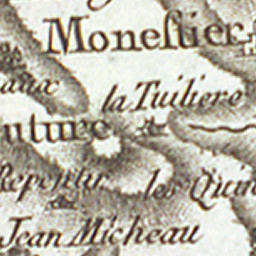 Moneſtier
aux
la Tuiliere
uture
Repentir
les Quin
Jean Micheau